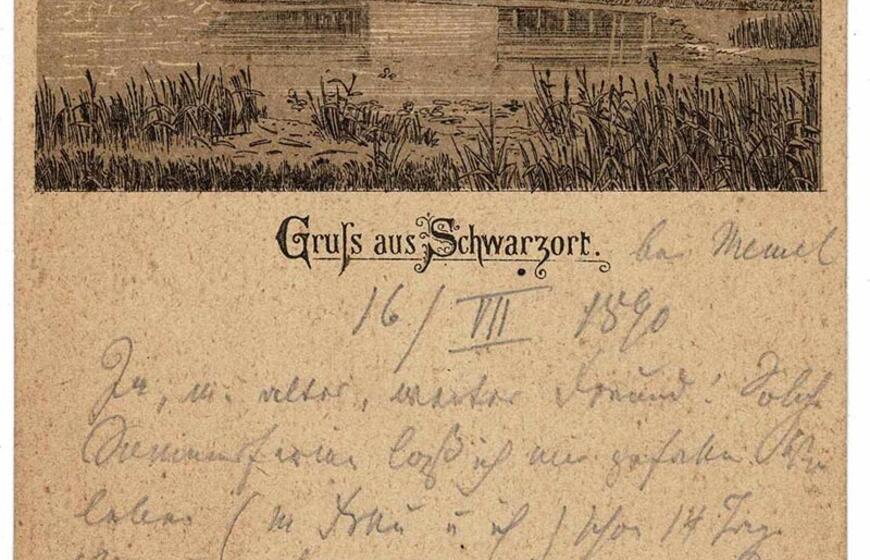 Gruſs aus Schwarzort. bei Memel
16/VII 1890
Ja, m. alter, werter Freund! Solch
Sommerferien laß ich mir gefallen. Wir
leben (m Frau u ich) schon 14 Tage